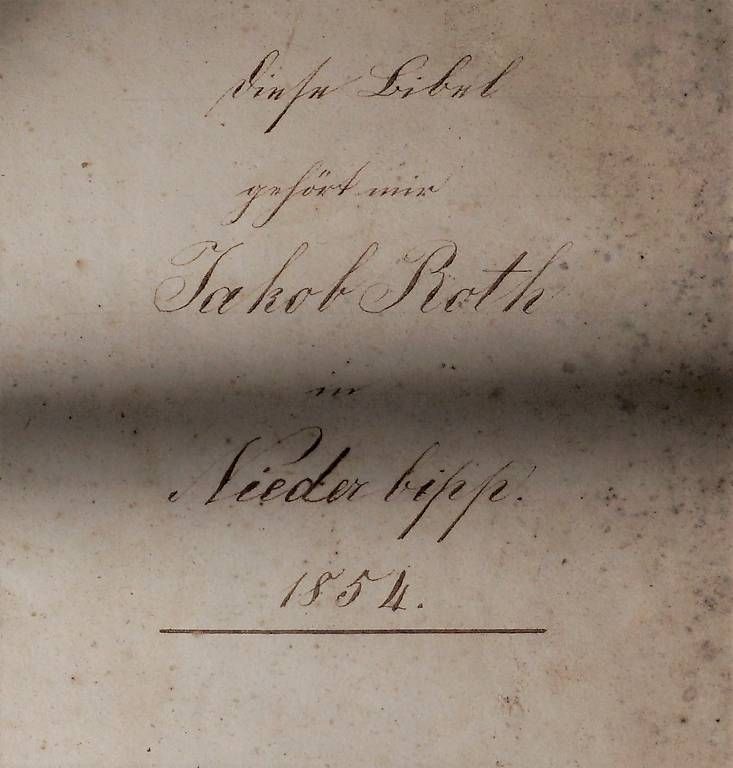 Diese Bibel
gehört mir
Jakob Roth
in
Niederbipp.
1854.